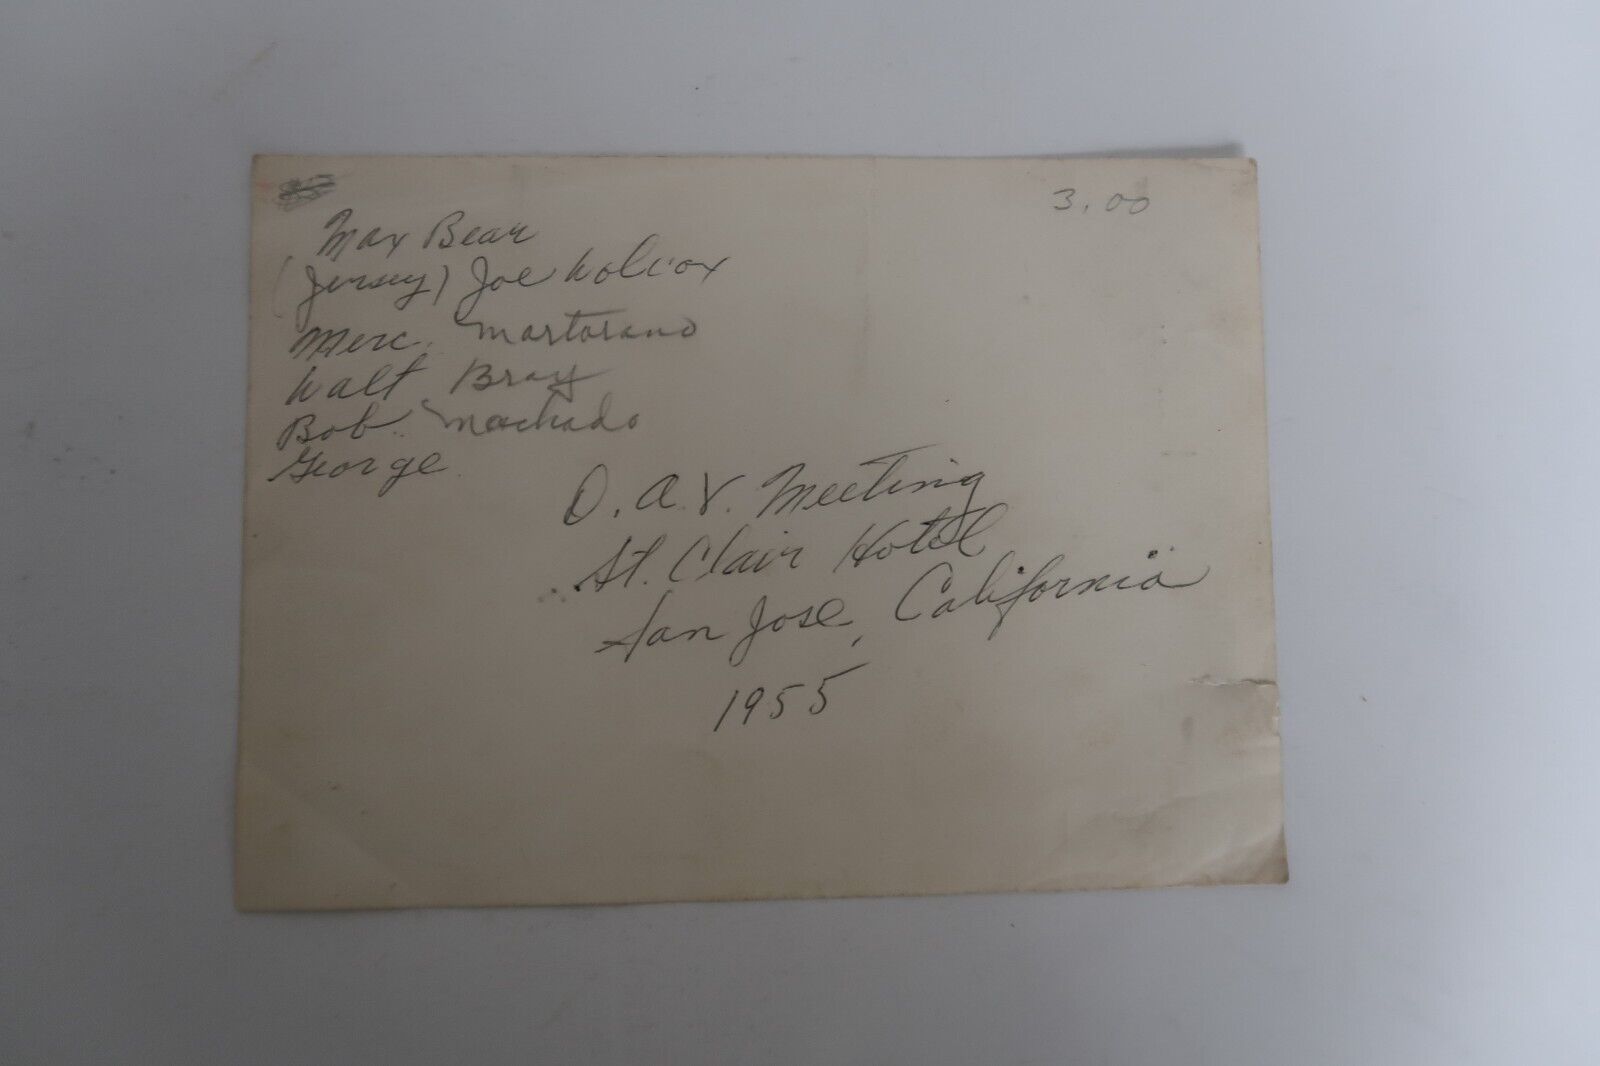 3.00
Max Bear
(Jersey) Joe Wolcox
Merc. Martorano
Walt Bray
Bob. Machado
George
D.A.V. Meeting
St. Clair Hotel
San Jose, California
1955